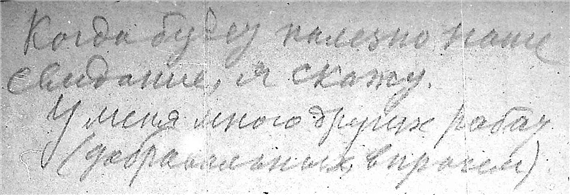 Когда будет полезно наше
свидание, я скажу.
У меня много других работ
(добровольных, впрочем)